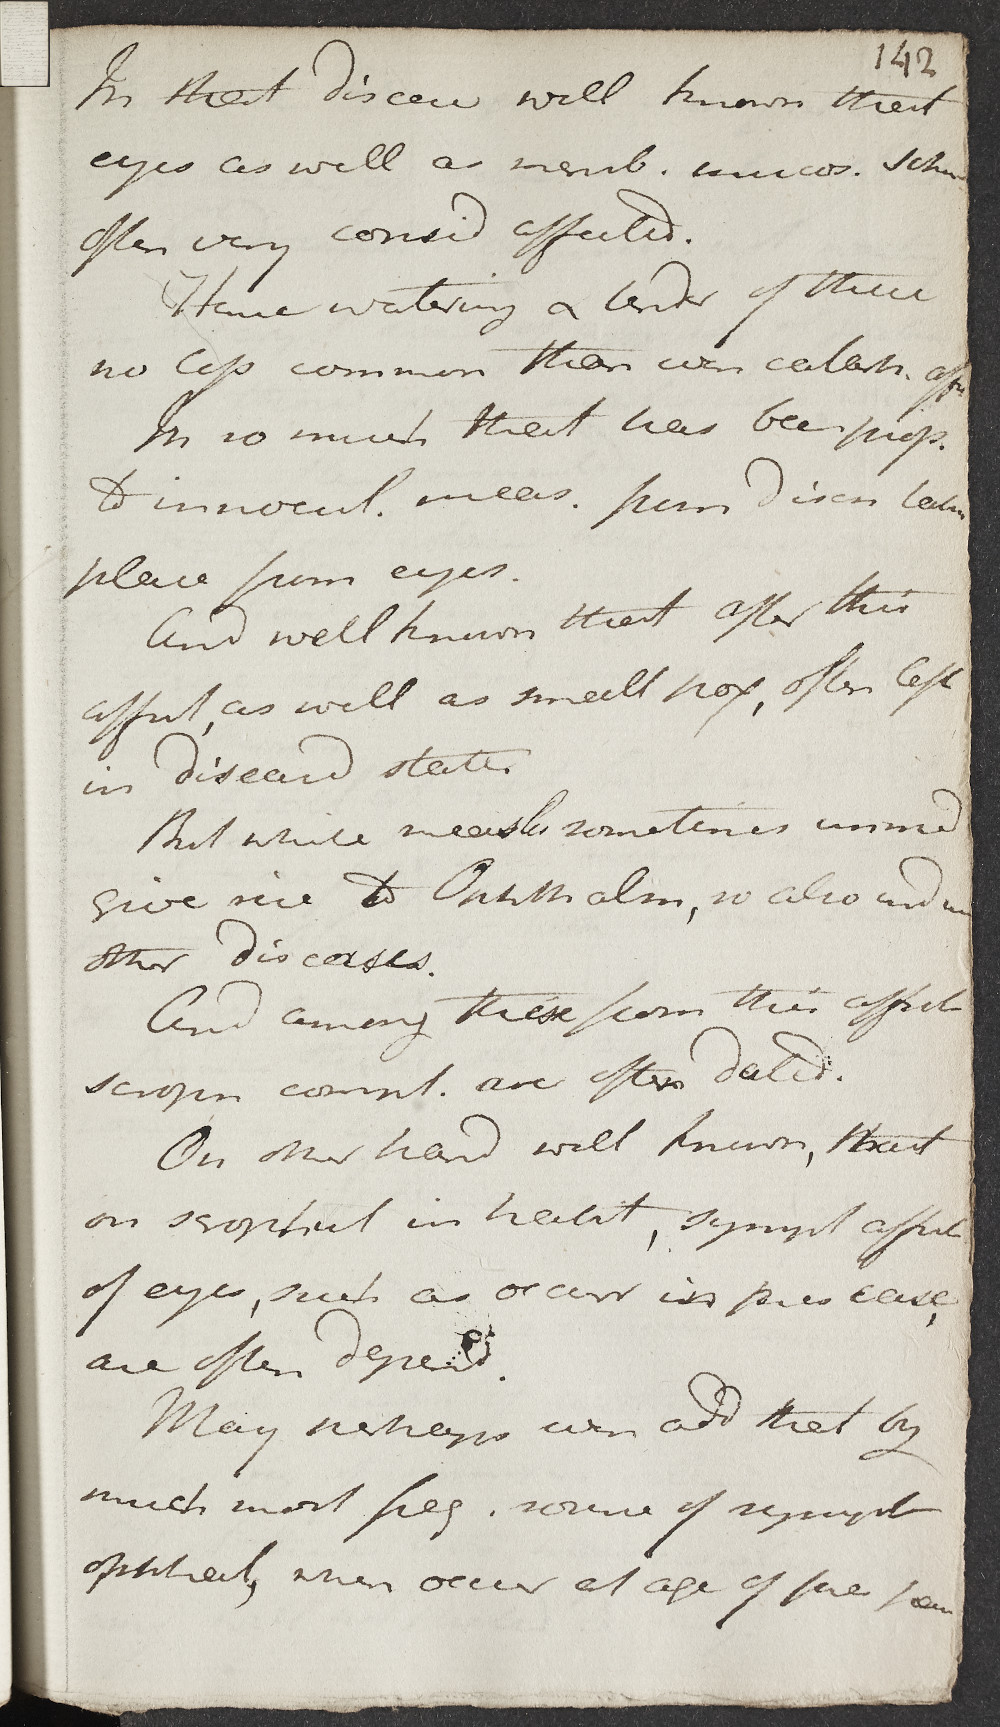 142
In that disease well known that
eyes as well as memb. mucos. Schn
often very consid affected.
Hence watering & tender of these
no less common than even catarrh. affe
In so much that has been prop.
to innocul. meas. from disch
place from eyes.
And well known that after this
affect, as well as small pox, often left
in diseased state
But while measles sometimes immed
give rise to Ophthalm, so also
other diseases.
And among these from this affect
scroph compl. are often dated.
On other hand well known, that
on scrophul in habit, sympt affect
of eyes, such as occur in pres case,
are often depend.
May perhaps even add that by
much most freq. source of sympt
ophthal, when occur at age of pres